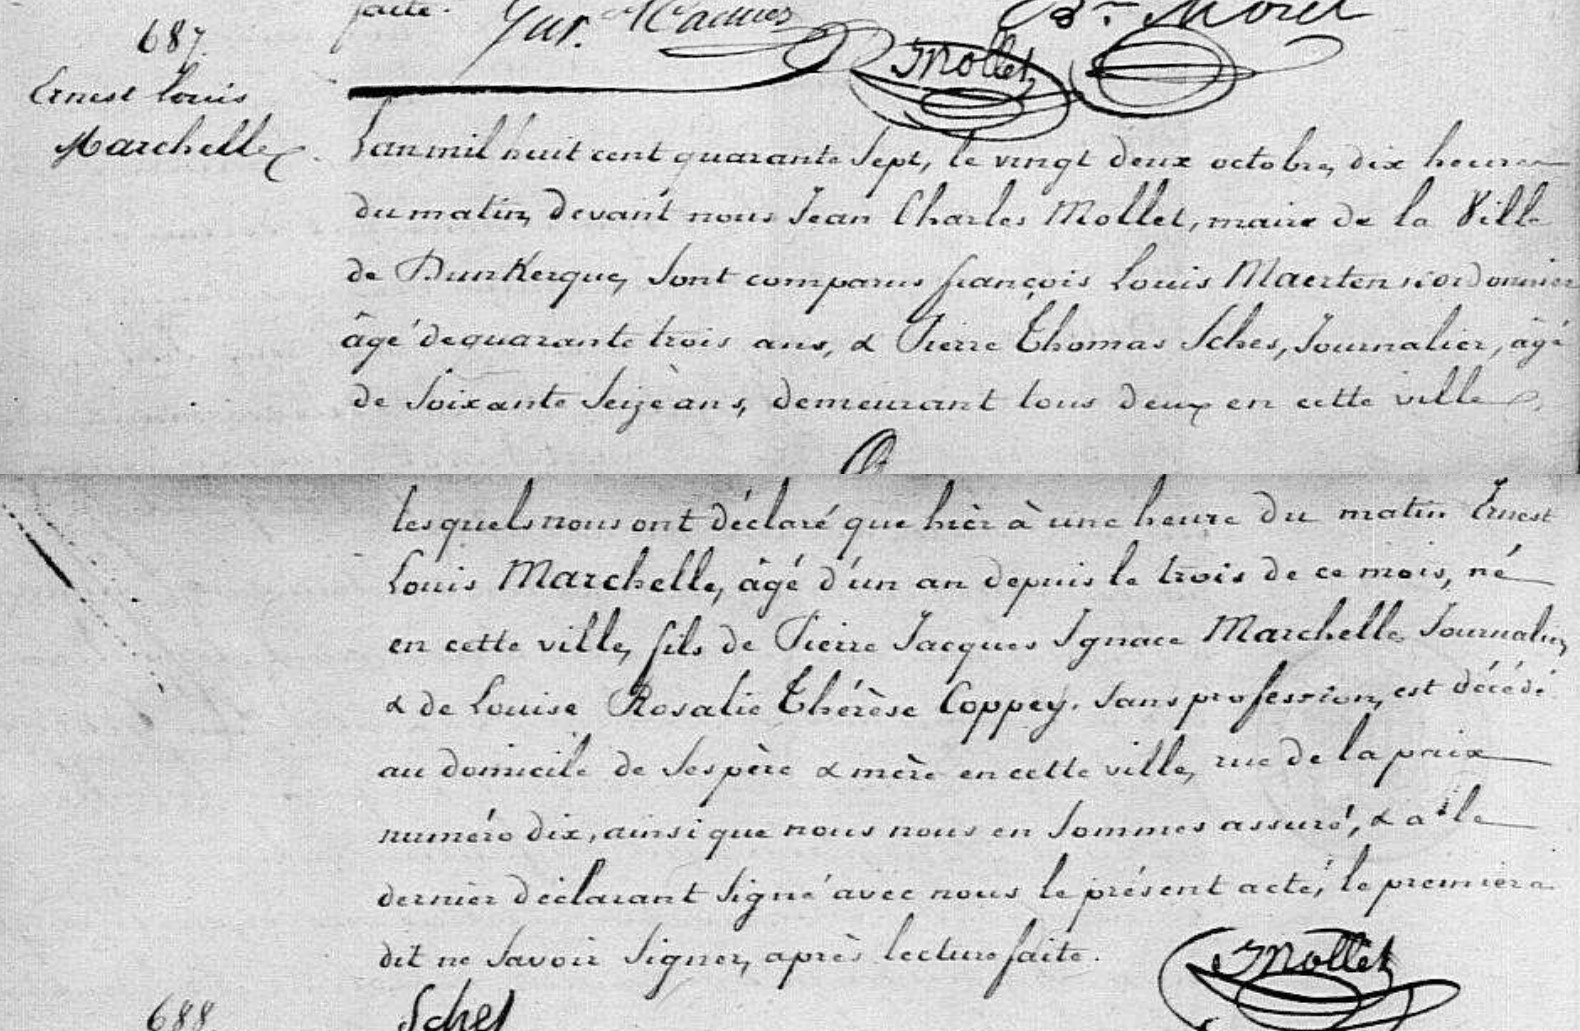 faite.
Mollet
687.
Ernest Louis
Marchelle
L'an mil huit cent quarante Sept, le vingt deux octobre, dix heures
du matin, devant nous Jean Charles Mollet, maire de la Ville
de Dunkerque, Sont comparus françois Louis Maerten, cordonnier
âgé de quarante trois ans, & Pierre Thomas Sches, Journalier, âgé
de Soixante Seize ans, demeurant tous deux en cette ville,
lesquels nous ont déclaré que hièr à une heure du matin Ernest
Louis Marchelle, âgé d'un an depuis le trois de ce mois, né
en cette ville, fils de Pierre Jacques Ignace Marchelle Journalier,
& de Louise Rosalie Thérèse Coppey. Sans profession, est décédé
au domicile de Ses père & mère en cette ville, rue de la paix
numéro dix, ainsi que nous nous en Sommes assuré, & a le
dernier déclarant Signé avec nous le présent acte, le premier a
dit ne Savoir Signer, après lecture faite.
Mollet
688.
Sches